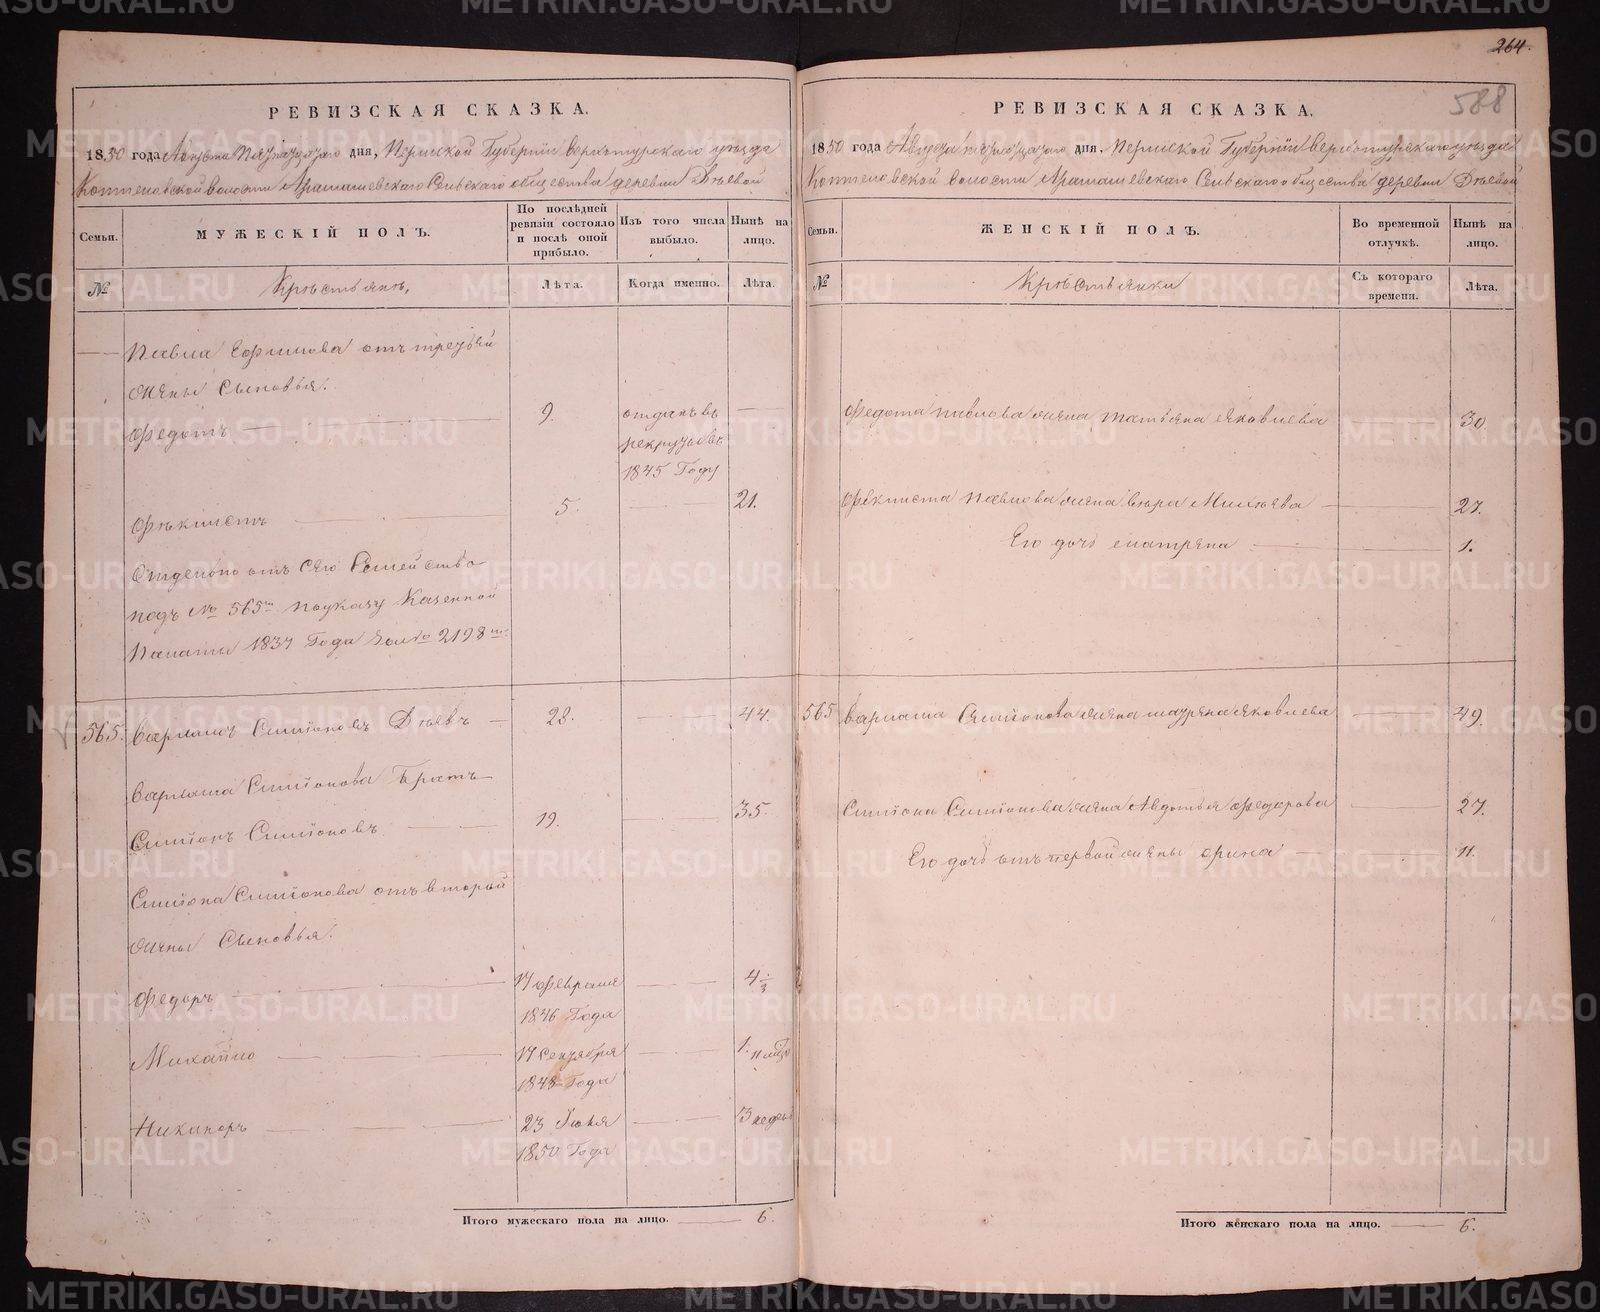 264.
588
РЕВИЗСКАЯ СКАЗКА.
1850 года Августа пятнадцатаго дня, Пермской Губернiи Верхотурскаго уѣзда
Коптеловской волости Арамашевскаго Сельскаго общества деревни Дѣевой
Семьи. МУЖЕСКІЙ ПОЛЪ. По послѣдней ревизіи состояло и послѣ оной прибыло. Изъ того числа выбыло. Нынѣ на лицо.
№ Крѣстьянѣ, Лѣта. Когда именно. Лѣта.
Павла Ефимова отъ третьей
жены Сыновья.
Федотъ 9. отданъ въ
рекруты въ
1845 Году
Фѣклистъ 5. 21.
Отдельно отъ сего Семейство
подъ № 565м поуказу Казенной
Палаты 1837 Года за № 2198м
565. Варламъ Симiоновъ Дѣевъ 28. 44.
Варлама Симiонова Братъ
Симiонъ Симiоновъ 19. 35.
Симiона Симiонова отъ второй
жены Сыновья.
Федоръ 17 Февраля 4½
1846 Года
Михайло 17 Сентября 1.
1848 Года
Никиноръ 23 Июля 3 недели
1850 Года
Итого мужескаго пола на лицо. 6.
РЕВИЗСКАЯ СКАЗКА.
1850 года Августа пятнадцатаго дня, Пермской Губернiи Верхотурскаго уѣзда
Коптеловской волости Арамашевскаго Сельскаго общества деревни Дѣевой
Семьи. ЖЕНСКІЙ ПОЛЪ. Во временной отлучкѣ. Нынѣ на лицо.
№ Крѣстьянки Съ котораго времени. Лѣта.
Федота Павлова жена Татьяна Яковлева 30.
Феклиста Павлова жена Вѣра Михѣева 27.
Его дочь Матрена 1.
565 Варлама Симiонова жена Матрена Яковлева 49.
Симiона Симiонова жена Авдотья Федорова 27.
Его дочь отъ первой жены Орина 11.
Итого женскаго пола на лицо. 6.